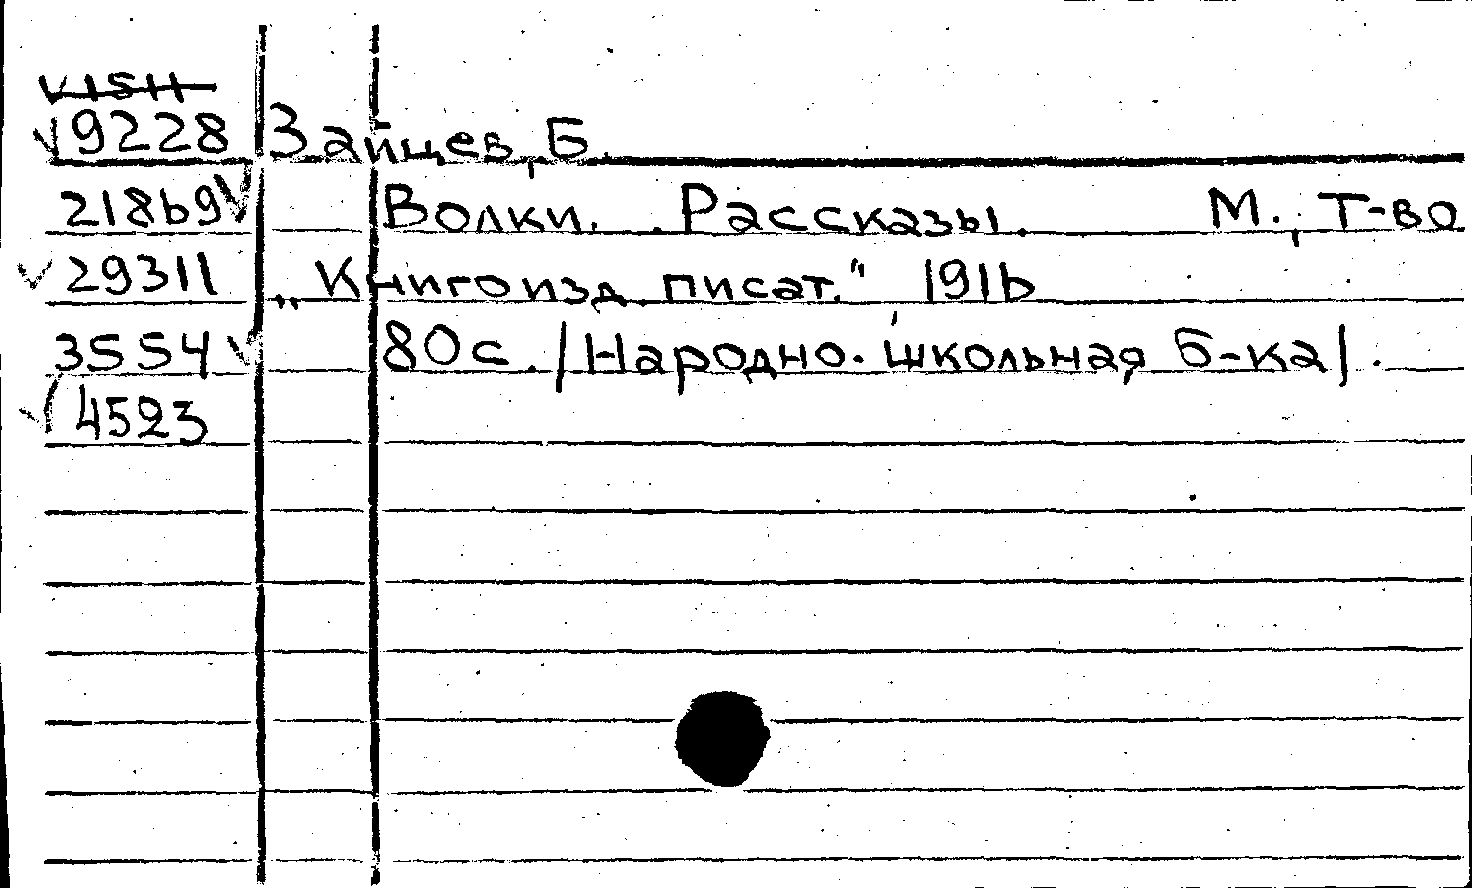 9228 Зайцев, Б.
21869 Волки. Рассказы. М., Т-во
29311 „Книгоизд. писат." 1916
3554 80с. /Народно-школьная б-ка/.
4523